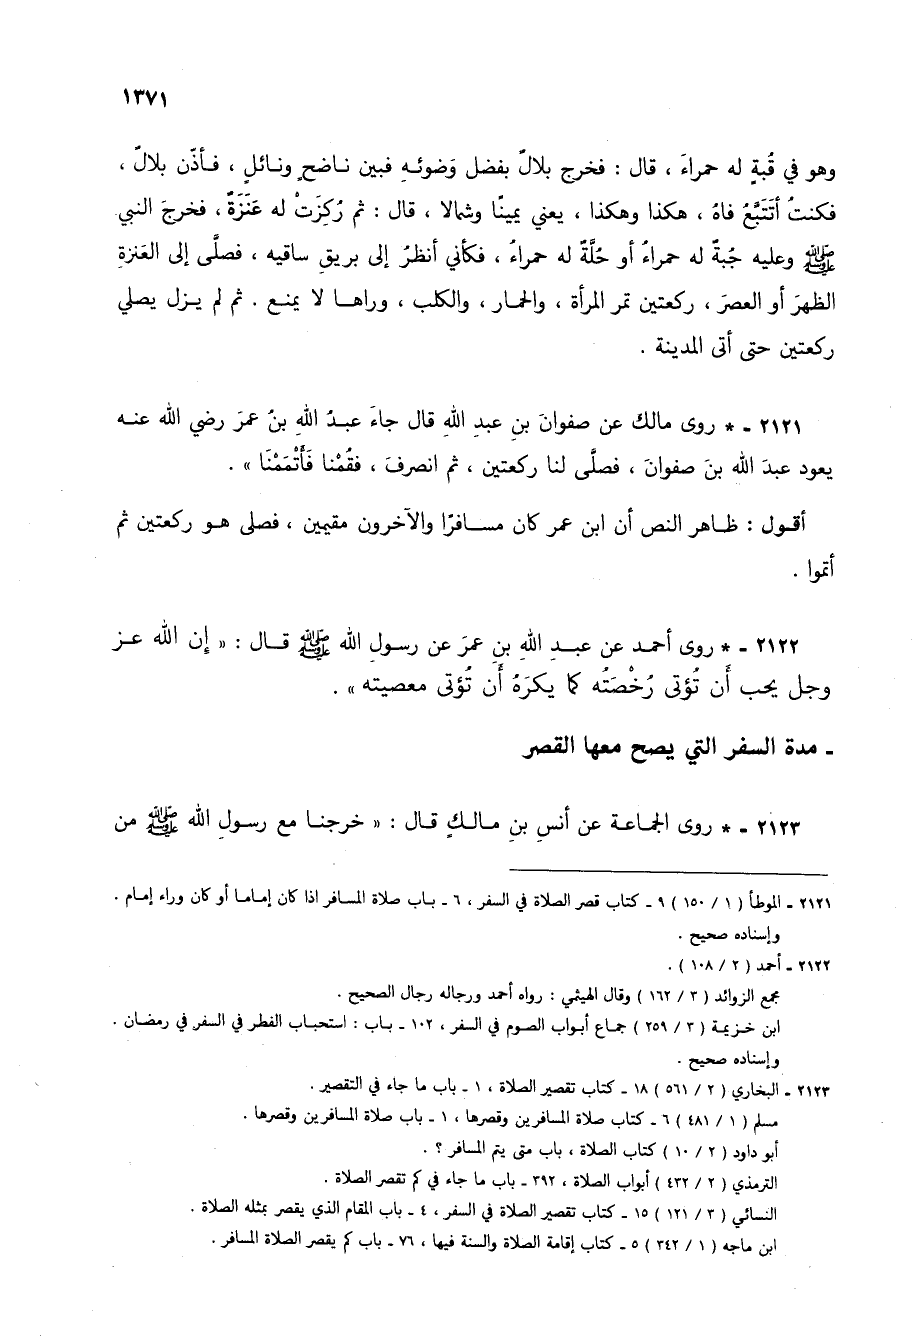 ١٣٧١
وهو في قُبةٍ له حمراءَ ، قال : فخرج بلالٌ بفضل وَضوئـهِ فبين نـاضحٍ ونـائلٍ ، فـأذّن بلالٌ ،
فكنتُ أتَتَبَّعُ فاهُ ، هكذا وهكذا ، يعني يمينًا وشمالا ، قال : ثم رُكِزَتْ له عَنَزَةٌ ، فخرجَ النبي
ﷺ وعليه جُبةٌ له حمراءُ أو حُلَّةٌ له حمراءُ ، فكأني أنظرُ إلى بريقِ ساقيه ، فصلَّى إلى العَنزةِ
الظهرَ أو العصرَ ، ركعتين تمر المرأة ، والحمـار ، والكلب ، وراهـا لا يمنـع . ثم لم يـزل يصلي
ركعتين حتى أتى المدينة .
٢١٢١ ـ * روى مالك عن صفوانَ بنِ عبدِ اللهِ قال جاءَ عبـدُ اللهِ بنُ عمرَ رضي الله عنـه
يعود عبدَ الله بنَ صفوانَ ، فصلَّى لنا ركعتين ، ثم انصرفَ ، فقُمْنا فَأَتْمَمْنَا » .
أقـول : ظـاهر النص أن ابن عمر كان مسـافرًا والآخرون مقيمين ، فصلى هـو ركعتين ثم
أتموا .
٢١٢٢ ـ * روى أحمـد عن عبـدِ اللهِ بنِ عمرَ عن رسولِ الله ﷺ قـال : « إن الله عـز
وجل يحب أَن تُؤتى رُخْصَتُه كما يكرَهُ أَن تُؤتى معصيته » .
ـ مدة السفر التي يصح معها القصر
٢١٢٣ ـ * روى الجمـاعـة عن أنسِ بنِ مـالـكٍ قـال : « خرجنـا مع رسـولِ الله ﷺ من
٢١٢١ ـ الموطأ ( ١ / ١٥٠ ) ٩ ـ كتاب قصر الصلاة في السفر ، ٦ ـ بـاب صلاة المسافر اذا كان إمامـا أو كان وراء إمام .
وإسناده صحيح .
٢١٢٢ ـ أحمد ( ٢ / ١٠٨ ) .
مجمع الزوائد ( ٣ / ١٦٢ ) وقال الهيثمي : رواه أحمد ورجاله رجال الصحيح .
ابن خـزيمـة ( ٣ / ٢٥٩ ) جمـاع أبـواب الصـوم في السفر ، ١٠٢ ـ بـاب : استحبـاب الفطر في السفر في رمضـان .
وإسناده صحيح .
٢١٢٣ ـ البخاري ( ٢ / ٥٦١ ) ١٨ ـ كتاب تقصير الصلاة ، ١ ـ باب ما جاء في التقصير .
مسلم ( ١ / ٤٨١ ) ٦ ـ كتاب صلاة المسافرين وقصرها ، ١ ـ باب صلاة المسافرين وقصرها .
أبو داود ( ٢ / ١٠ ) كتاب الصلاة ، باب متى يتم المسافر ؟ .
الترمذي ( ٢ / ٤٣٢ ) أبواب الصلاة ، ٣٩٢ ـ باب ما جاء في كم تقصر الصلاة .
النسائي ( ٣ / ١٢١ ) ١٥ ـ كتاب تقصير الصلاة في السفر ، ٤ ـ باب المقام الذي يقصر بمثله الصلاة .
ابن ماجه ( ١ / ٣٤٢ ) ٥ ـ كتاب إقامة الصلاة والسنة فيها ، ٧٦ ـ باب كم يقصر الصلاة المسافر .